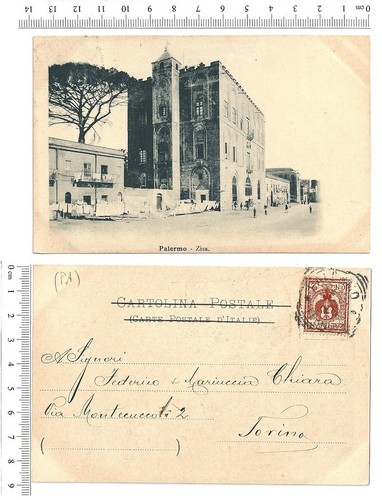 14 13 12 11 10 9 8 7 6 5 4 3 2 1 0 cm
Palermo - Zisa.
0 cm 1 2 3 4 5 6 7 8 9
(PA)
CARTOLINA POSTALE
(CARTE POSTALE D'ITALIE)
A Signori
Federico & Mariuccia Chiara
Via Montecuccoli 2
Torino
( )